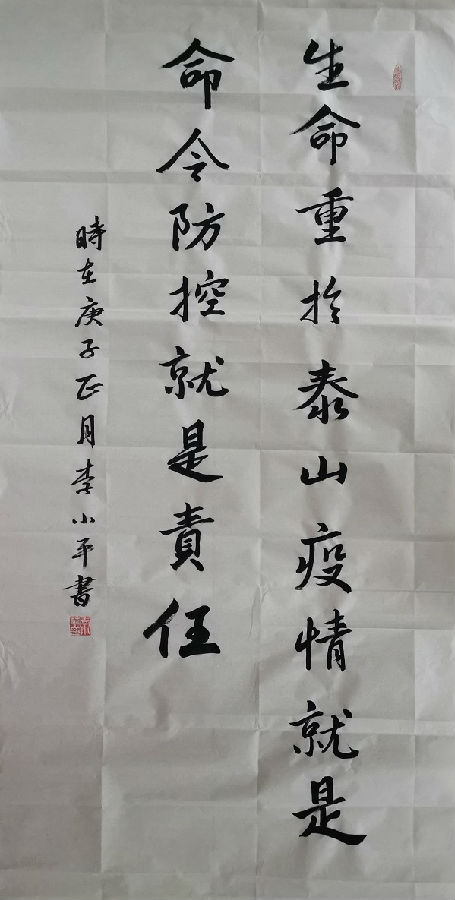 生命重扵泰山疫情就是
命令防控就是責任
時在庚子正月李小平書